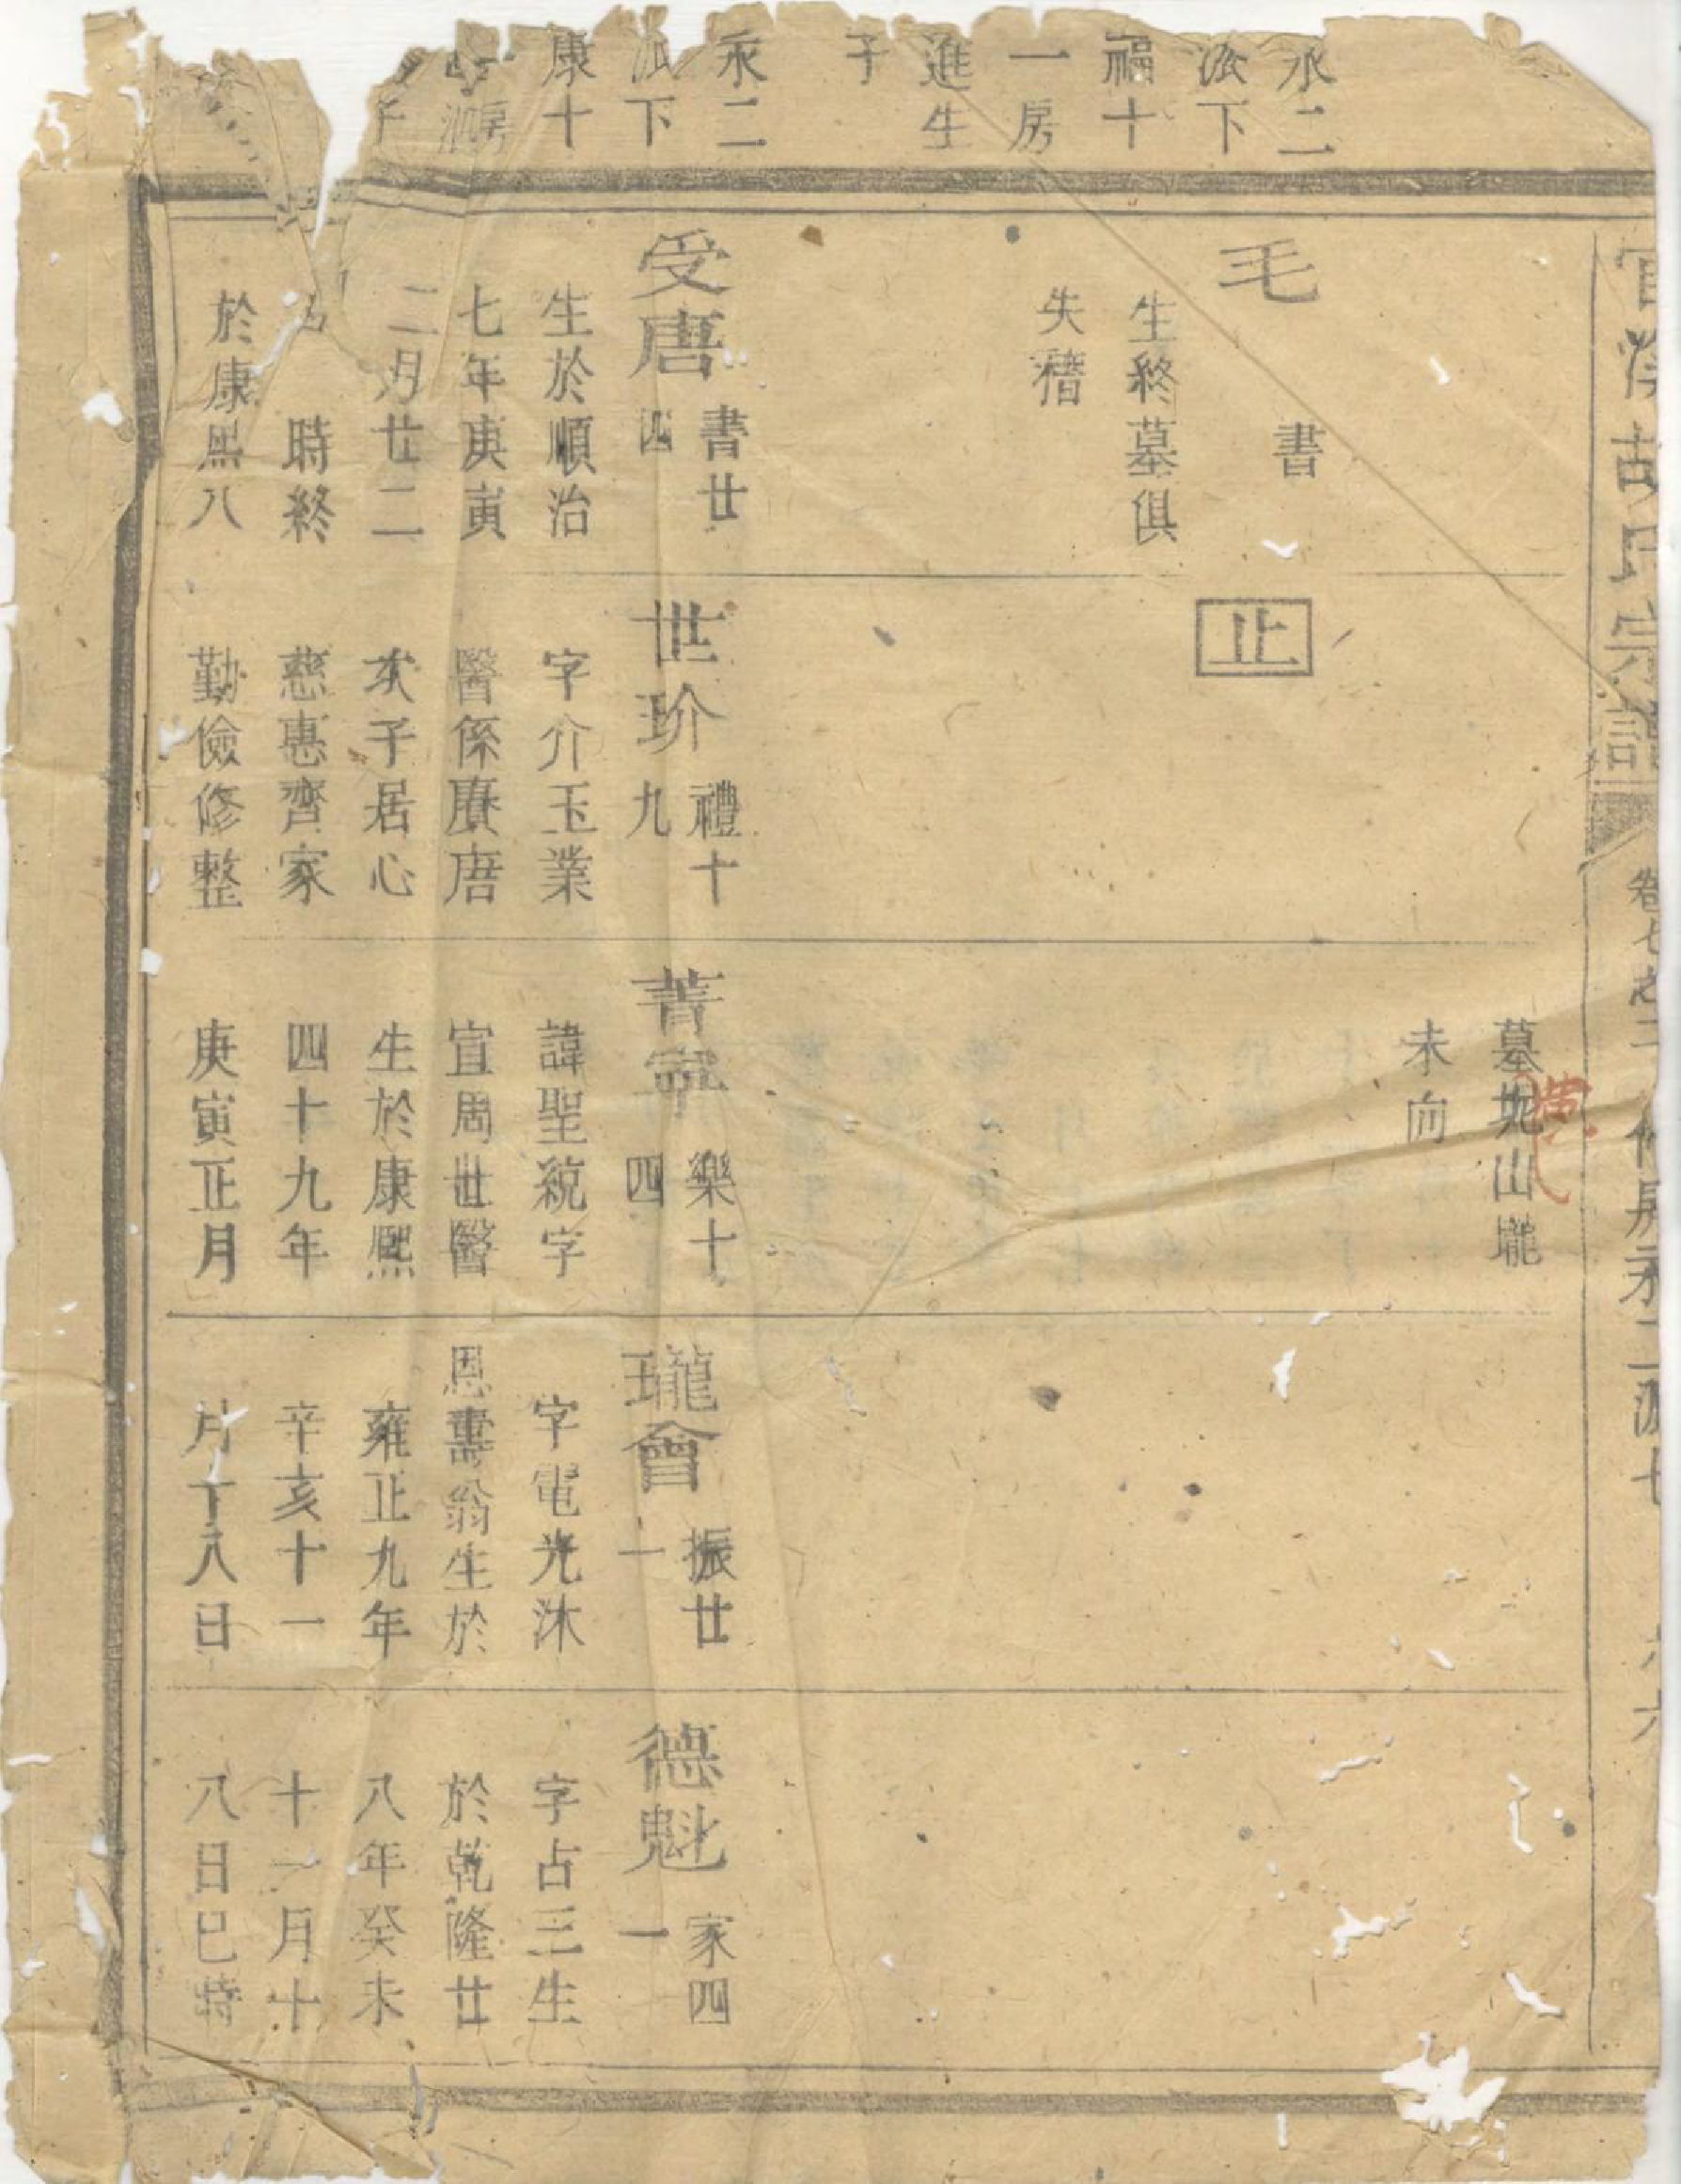 胡氏宗譜
卷七之二
永二派
六六
永二
派下
福十
一房
進生
子
永二
派下
康十
房
派
子
毛
書
生終墓俱
失稽
受唐
書廿
四
生於順治
七年庚寅
二月廿二
時終
於康熙八
止
世玠
禮十
九
字介玉業
醫係賡唐
次子居心
慈惠齊家
勤儉修整
墓坭山壠
未向
菁寧
樂十
四
諱聖統字
宣周世醫
生於康熙
四十九年
庚寅正月
瓏會
振廿
一
字電光沐
恩壽翁生於
雍正九年
辛亥十一
月丁八日
德魁
家四
一
字占三生
於乾隆廿
八年癸未
十一月十
八日巳時